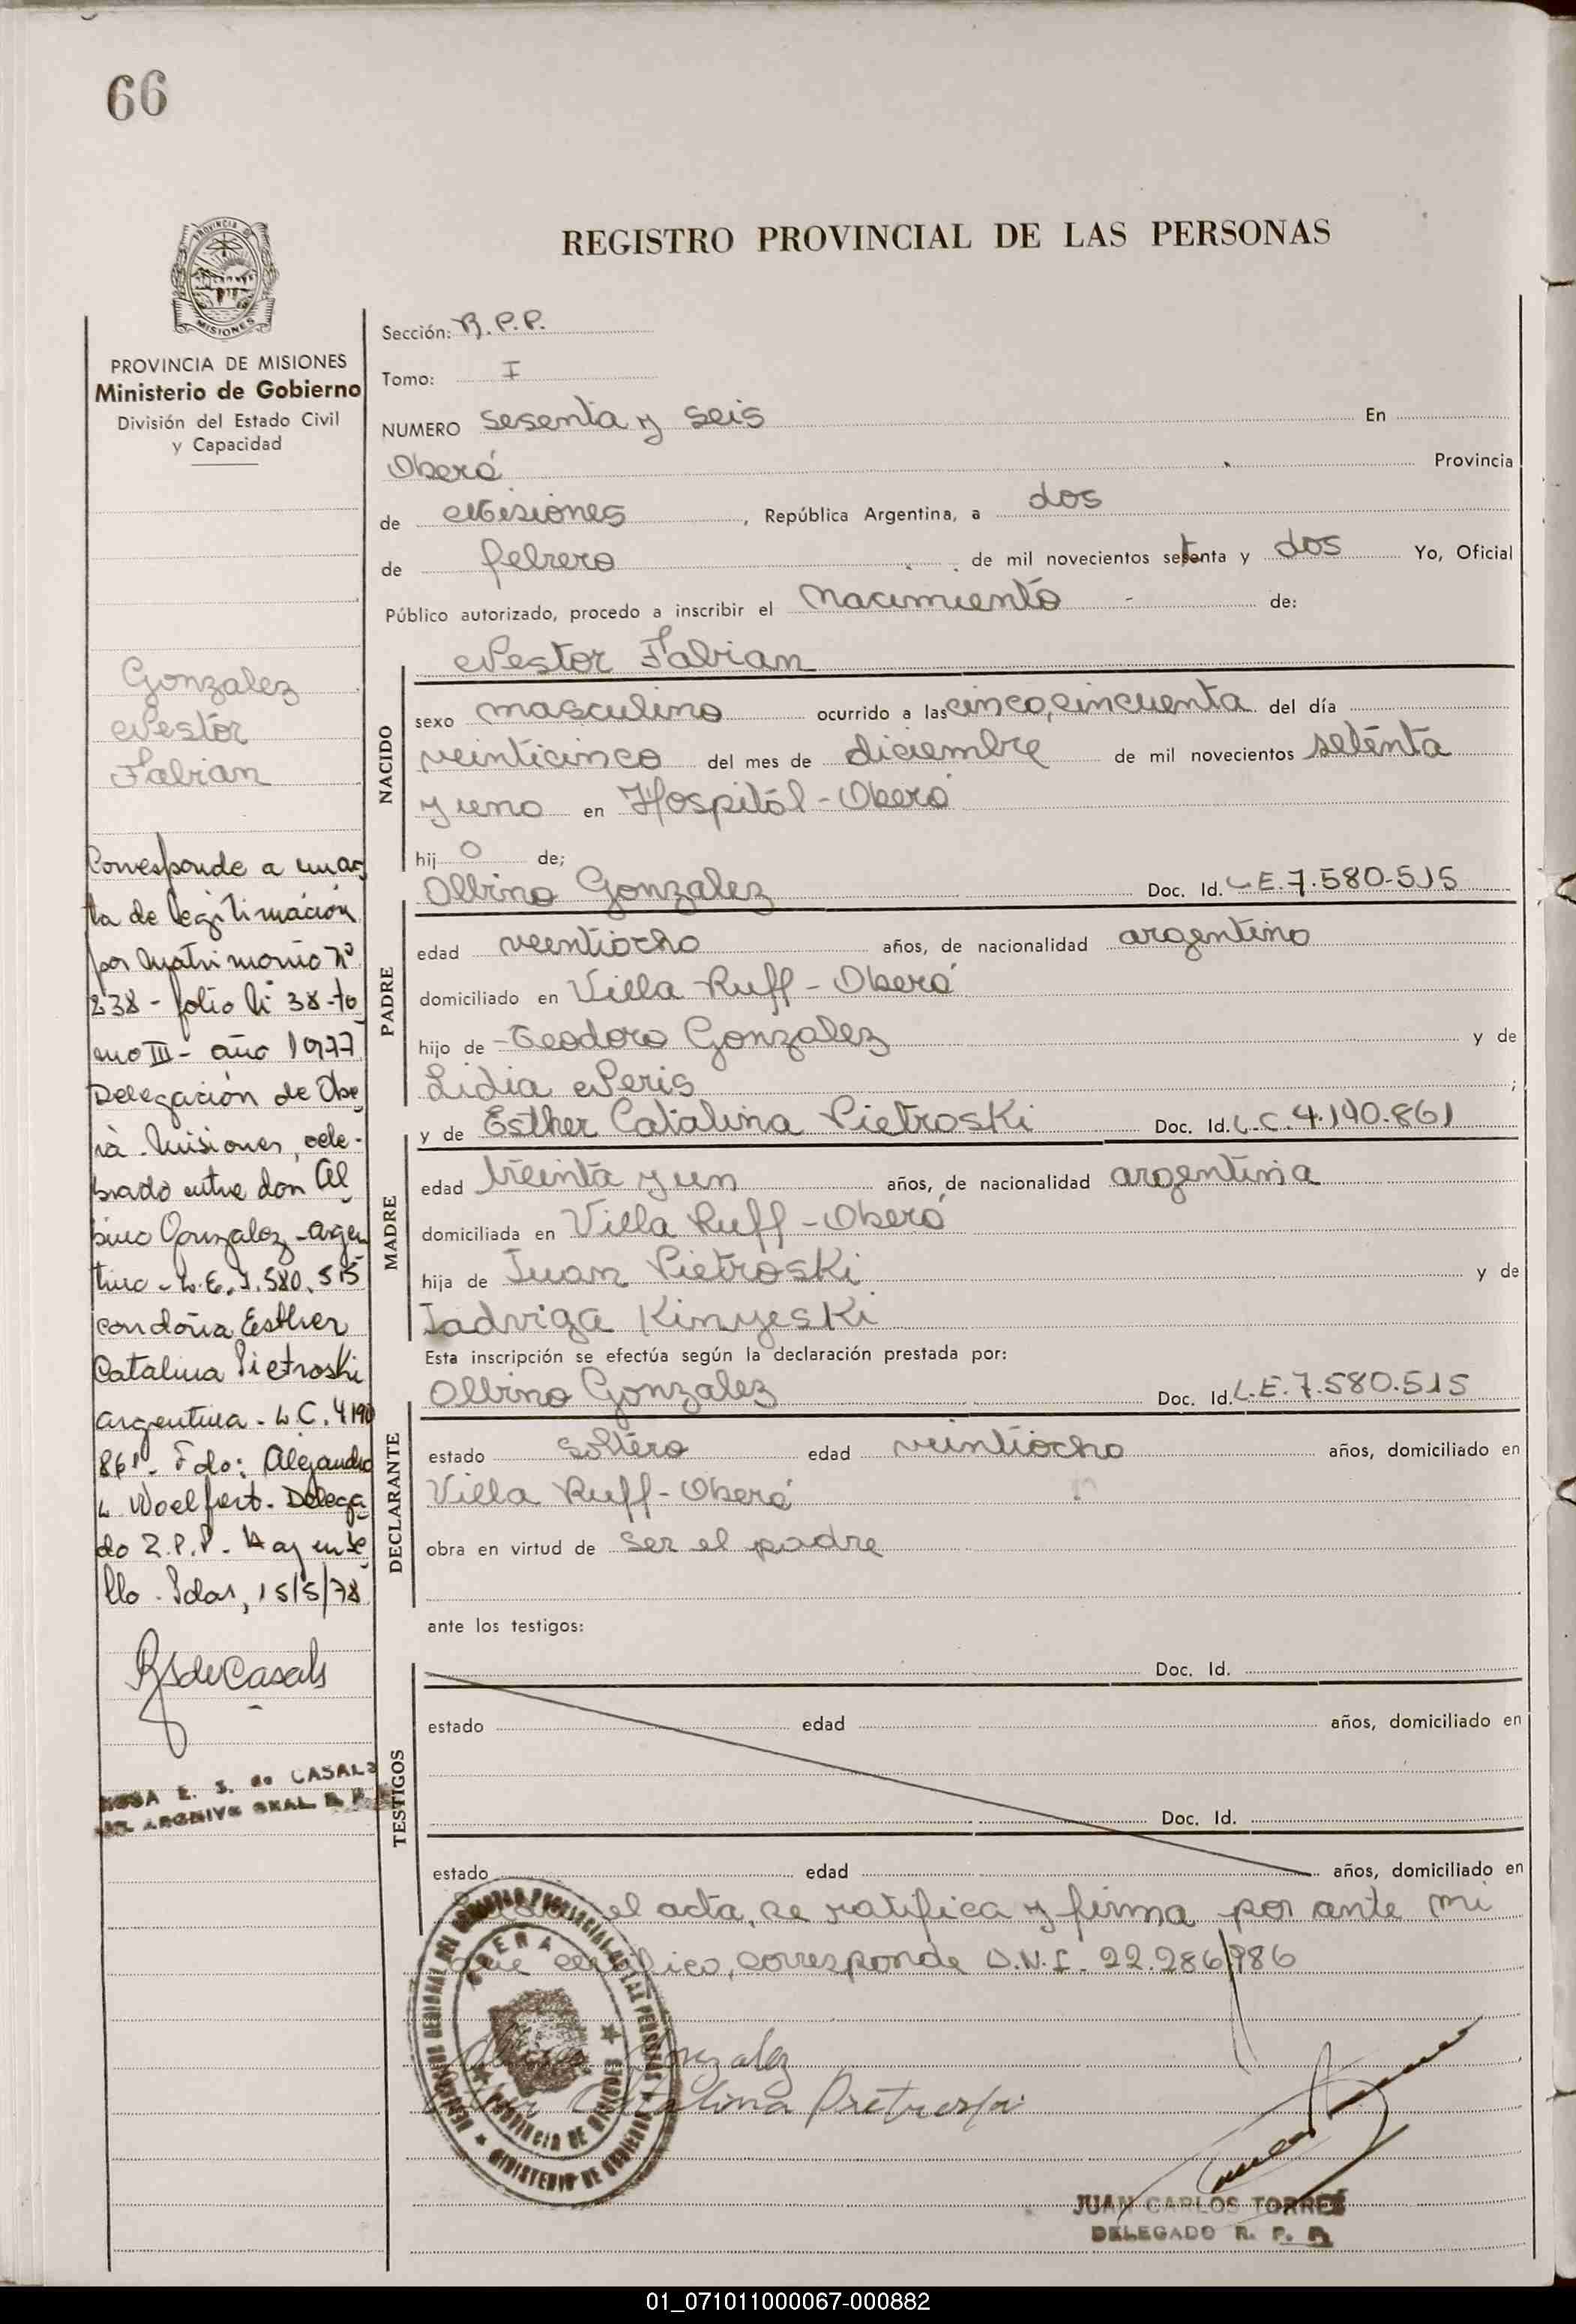 66
PROVINCIA DE
MISIONES
PROVINCIA DE MISIONES
Ministerio de Gobierno
División del Estado Civil
y Capacidad
REGISTRO PROVINCIAL DE LAS PERSONAS
Sección: R.P.P.
Tomo: I
NUMERO sesenta y seis En
Oberá Provincia
de Misiones, República Argentina, a dos
de febrero de mil novecientos setenta y dos Yo, Oficial
Público autorizado, procedo a inscribir el Nacimiento de:
Gonzalez
Nestor
Fabian
NACIDO
Nestor Fabian
sexo masculino ocurrido a las cinco, cincuenta del día
veinticinco del mes de diciembre de mil novecientos setenta
y uno en Hospital - Oberá
hij o de;
PADRE
Olbino Gonzalez Doc. Id. L.E. 7.580.515
edad veintiocho años, de nacionalidad argentino
domiciliado en Villa Ruff - Oberá
hijo de Teodoro Gonzalez y de
Lidia Neris ;
MADRE
y de Esther Catalina Pietroski Doc. Id. L.C. 4.190.861
edad treinta y un años, de nacionalidad argentina
domiciliada en Villa Ruff - Oberá
hija de Juan Pietroski y de
Jadviga Kinyeski
Esta inscripción se efectúa según la declaración prestada por:
DECLARANTE
Olbino Gonzalez Doc. Id. L.E. 7.580.515
estado soltero edad veintiocho años, domiciliado en
Villa Ruff - Oberá
obra en virtud de ser el padre
ante los testigos:
TESTIGOS
Doc. Id.
estado edad años, domiciliado en
Doc. Id.
estado edad años, domiciliado en
el acta, se ratifica y firma por ante mi
que certifico, corresponde D.N.I. 22.286.986
Gonzalez
Catalina Pietroski
OBERA
PROVINCIA DE MISIONES
JUAN CARLOS TORRES
DELEGADO R. P. P.
Corresponde a un ac
ta de legitimación
por Matrimonio Nº
238 - folio Nº 38 - to
mo III - año 1977
Delegación de Obe
rá - Misiones, cele-
brado entre don Al
bino Gonzalez - argen
tino - L.E. 7.580.515
con doña Esther
Catalina Pietroski
argentina - L.C. 4190
861 - Fdo: Alejandro
L. Woelfert - Delega
do R.P.P. - Hay un se
llo - Pdas, 15/5/78
RSdeCasals
ROSA E. S. de CASALS
ARCHIVO GRAL. R. P.
01_071011000067-000882